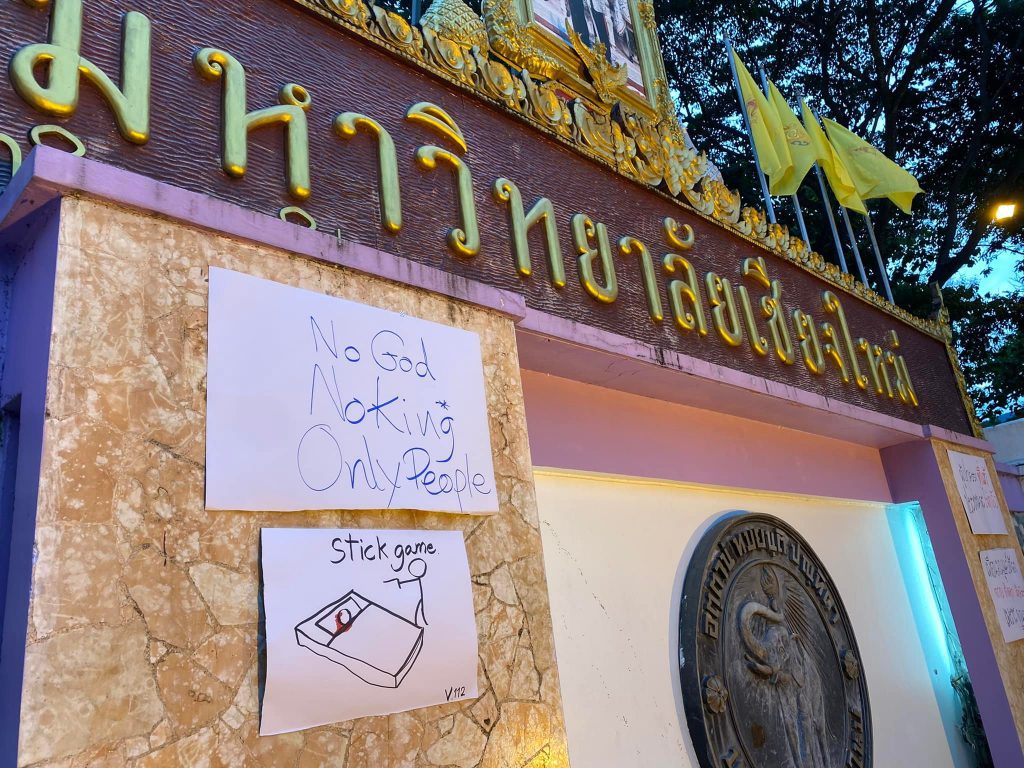 มหาวิทยาลัยเชียงใหม่
No God
No King
Only People
Stick game
V112